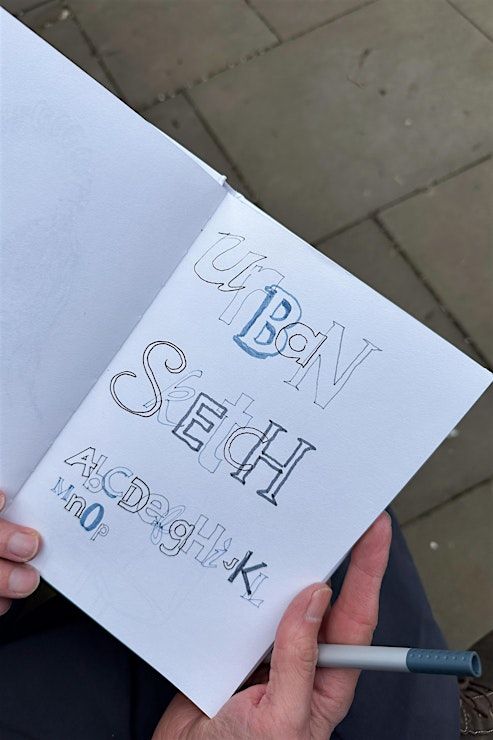 urBaN
SkEtcH
AbCDefgHiJKL
MnOp